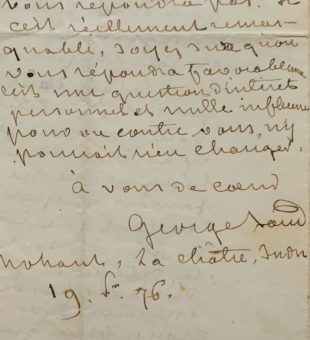 vous répondra pas. Si
c'est réellement remar-
quable, soyez sûr qu'on
vous répondra favorablement
c'est une question d'intérêt
personnel et nulle influence
pour ou contre vous, n'y
pourrait rien changer.
à vous de cœur
George Sand
Nohant, La Châtre, Indre
19 76.